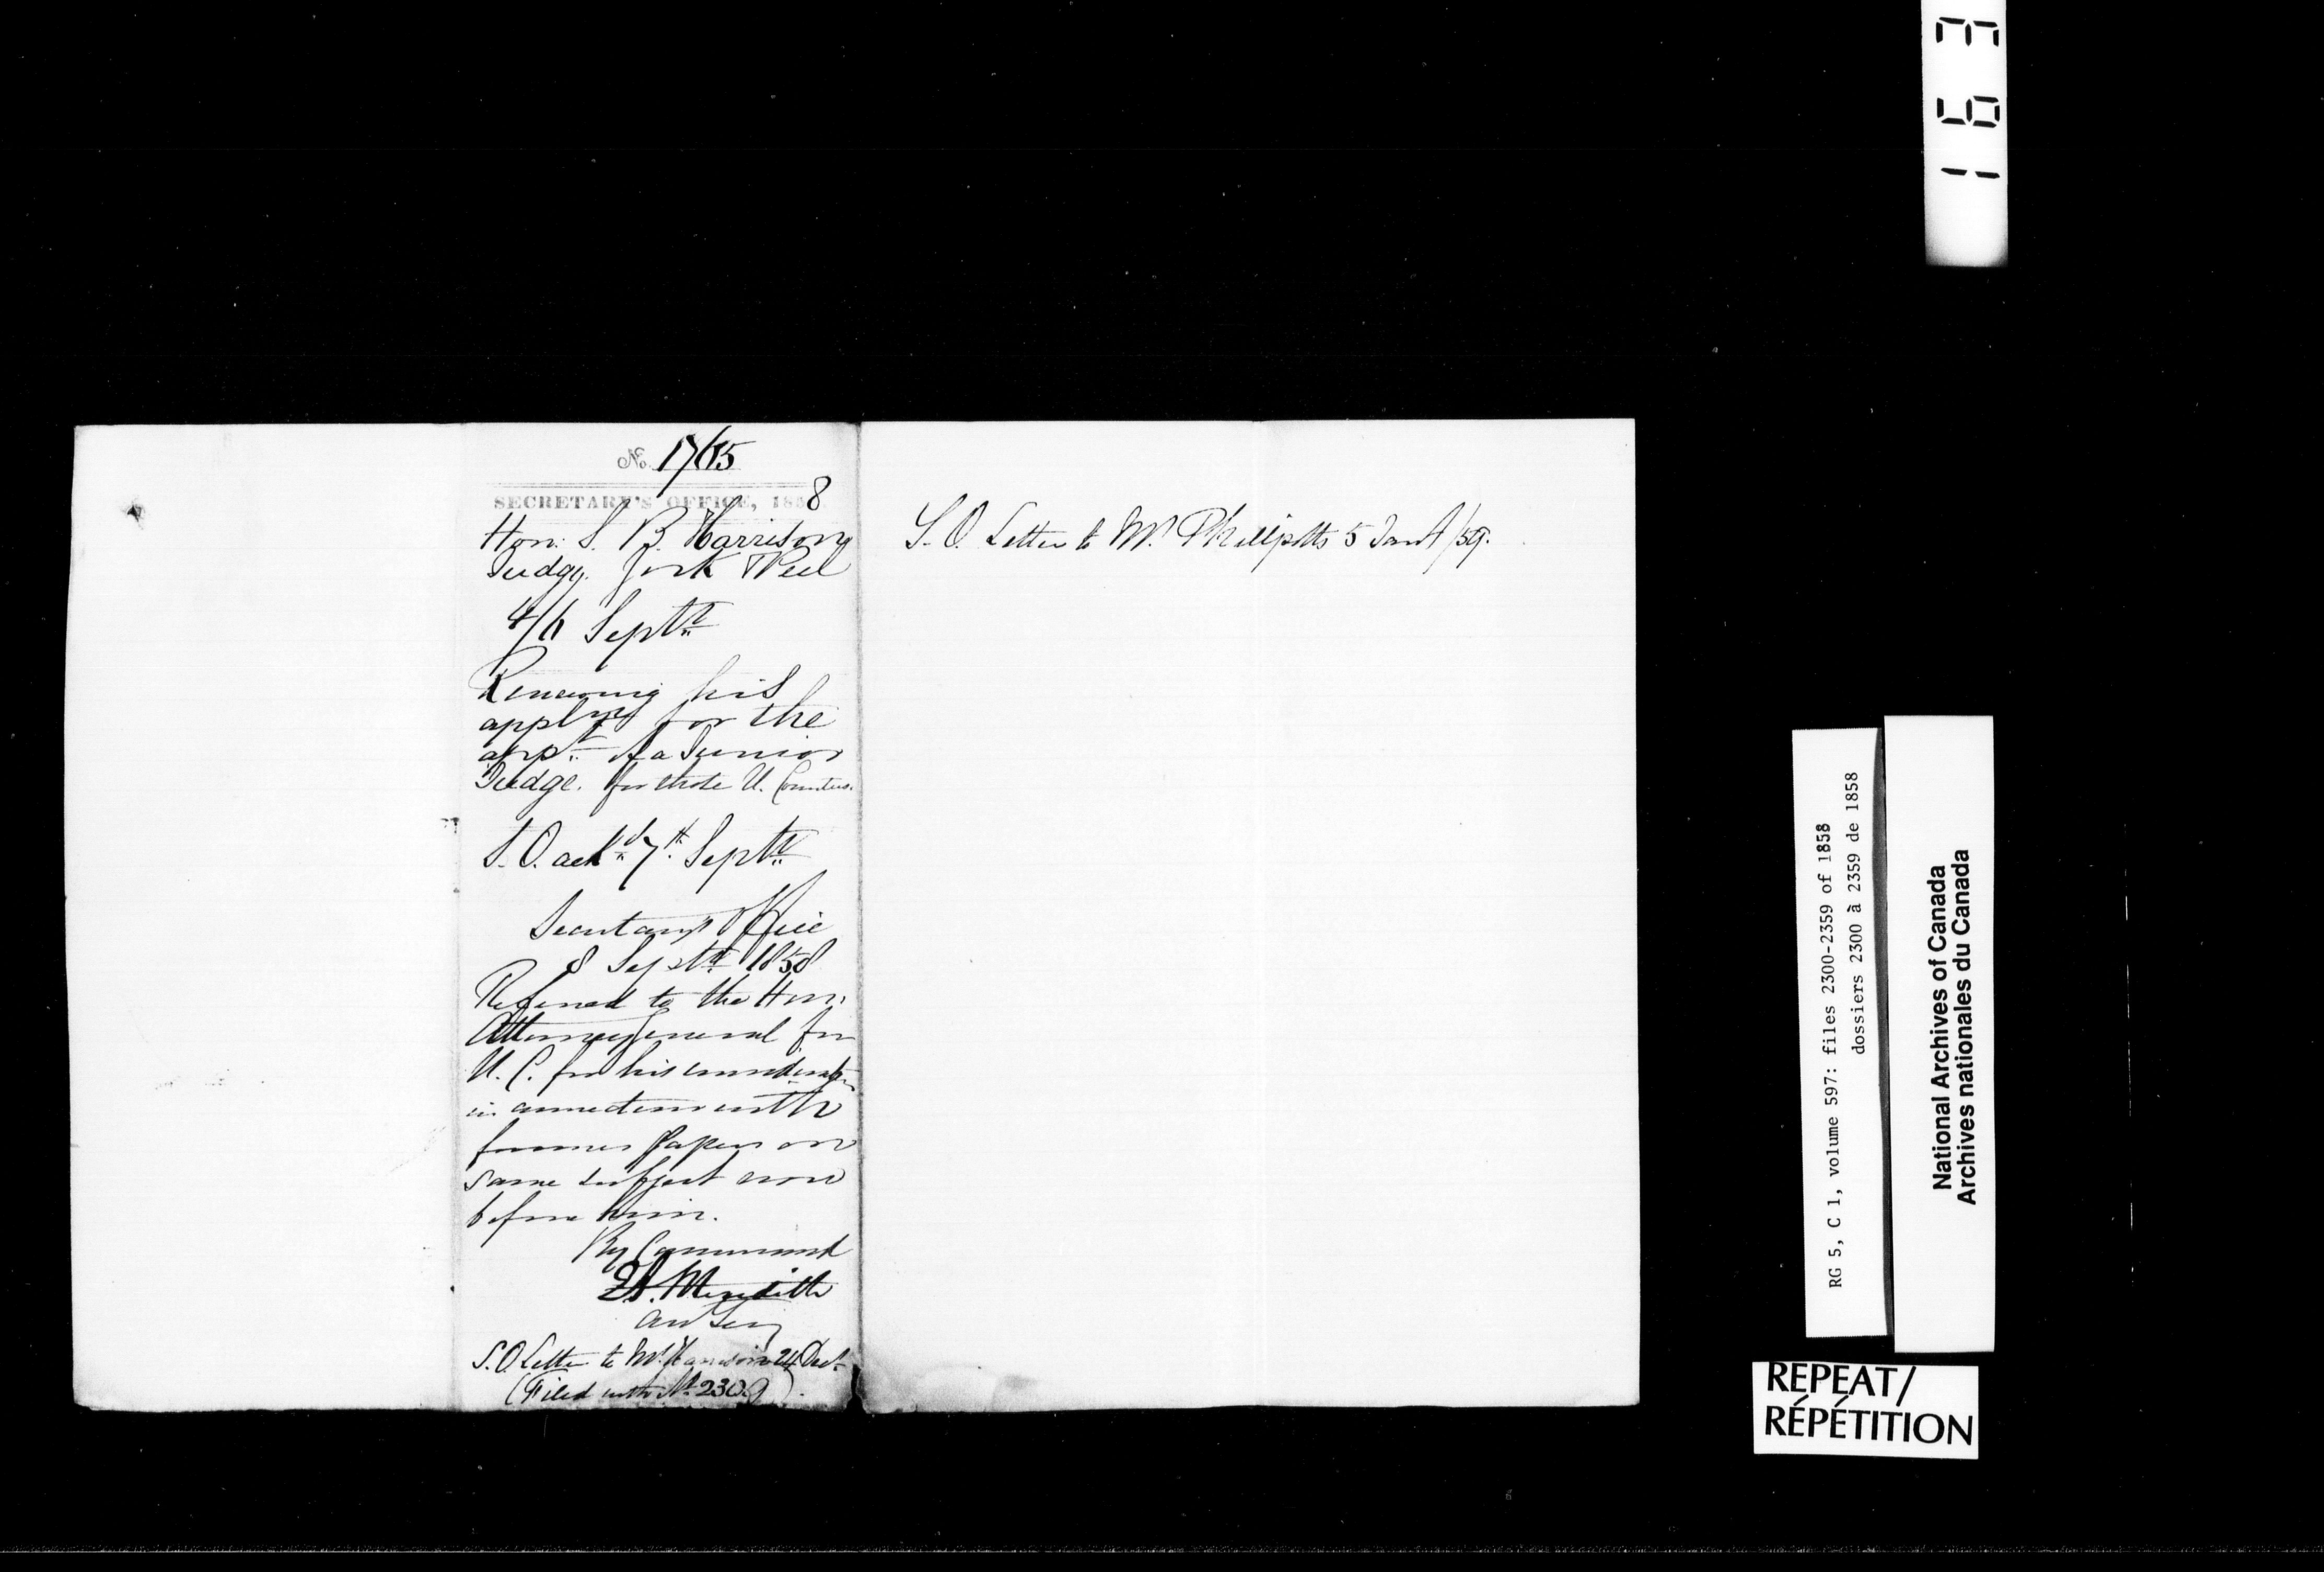 No. 1765
SECRETARY'S OFFICE, 1858
Hon: S. B. Harrison
Judge. York & Peel
4/6 Septr
Renewing his
appln for the
appt. of a Junior
Judge. for those U. Counties.
S. O. ackd 7th. Septr
Secretary's Office
8 Septr 1858
Referred to the Hon.
Attorney General for
U. C. for his consideration
in connection with
former papers on
same subject now
before him.
By Command
E. A. Meredith
Asst Secy
S. O. Letter to Mr. Harrison 24 Decr
(Filed with No. 2309).
S. O. Letter to Mr. Phillpotts 5 Jany /59.
163
RG 5, C 1, volume 597: files 2300-2359 of 1858
dossiers 2300 à 2359 de 1858
National Archives of Canada
Archives nationales du Canada
REPEAT/
RÉPÉTITION